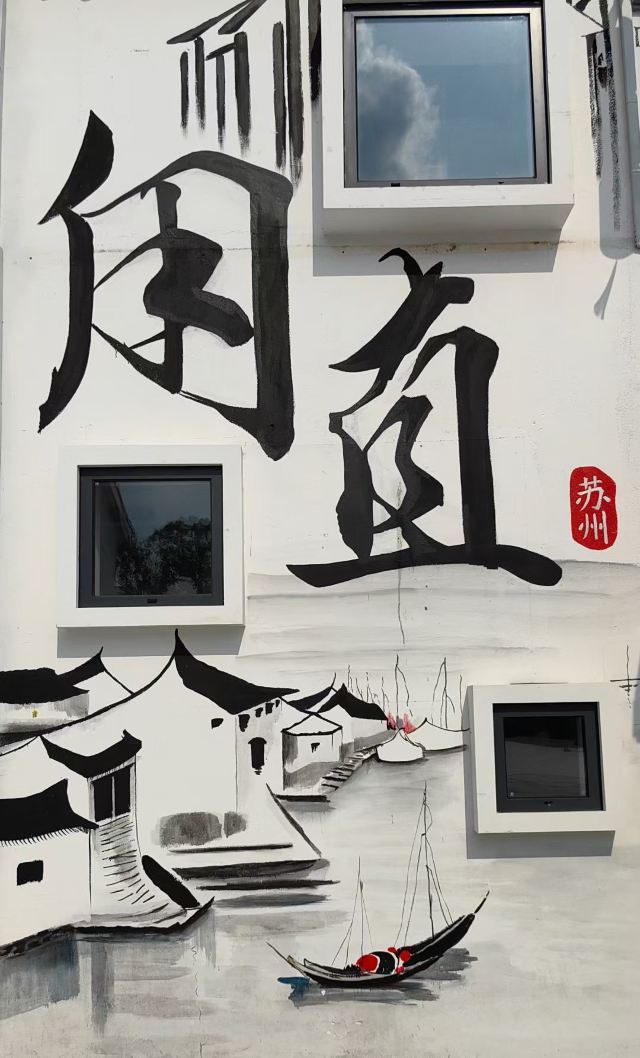 甪直
苏州